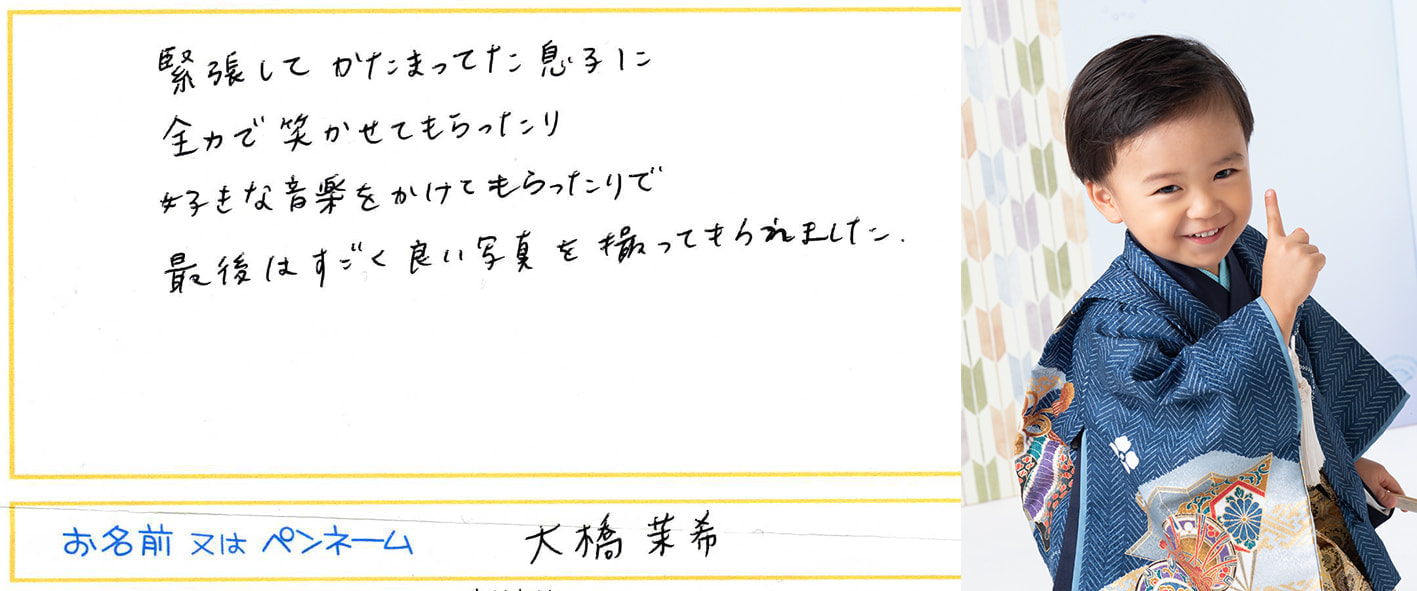 緊張してかたまってた息子に
全力で笑かせてもらったり
好きな音楽をかけてもらったりで
最後はすごく良い写真を撮ってもらえました.
お名前 又は ペンネーム 大橋 茉希